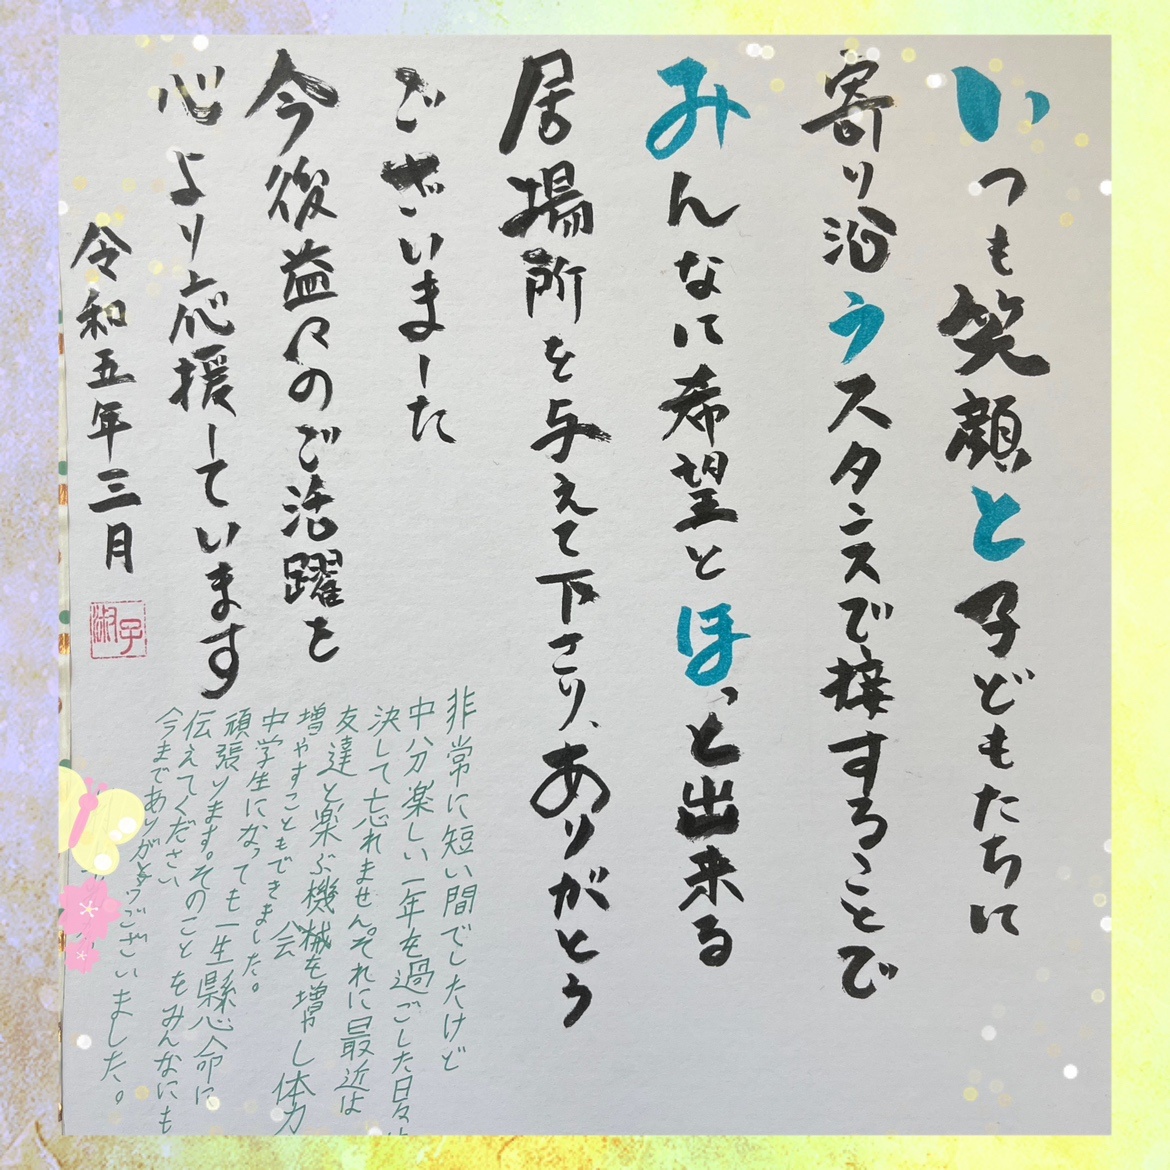 いつも笑顔と子どもたちに
寄り沿うスタンスで接することで
みんなに希望とほっと出来る
居場所を与えて下さり、ありがとう
ございました
今後益々のご活躍を
心より応援しています
令和五年三月
淑子
非常に短い間でしたけど
中八分楽しい一年を過ごした日々
決して忘れません。それに最近は
友達と楽ぶ機械を増やし体力
増やすこともできました。
中学生になっても一生懸命に
頑張ります。そのことをみんなにも
伝えてください
今までありがとうございました。